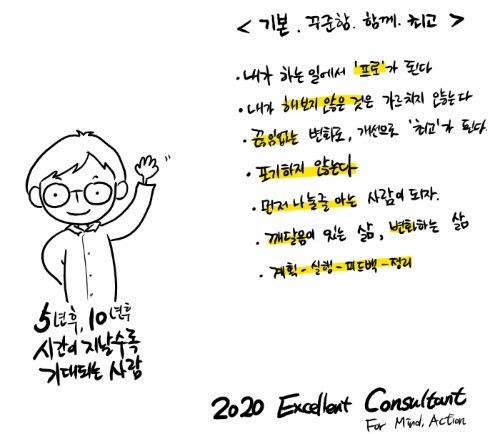 < 기본. 꾸준함. 함께. 최고 >
· 내가 하는 일에서 '프로'가 된다
· 내가 해보지 않은 것은 가르치지 않는다
· 끊임없는 변화로, 개선으로 '최고'가 된다.
· 포기하지 않는다
· 먼저 나눌줄 아는 사람이 되자.
· 깨달음이 있는 삶, 변화하는 삶
· 계획 - 실행 - 피드백 - 정리
5년후, 10년후
시간이 지날수록
기대되는 사람
2020 Excellent Consultant
For Mind, Action